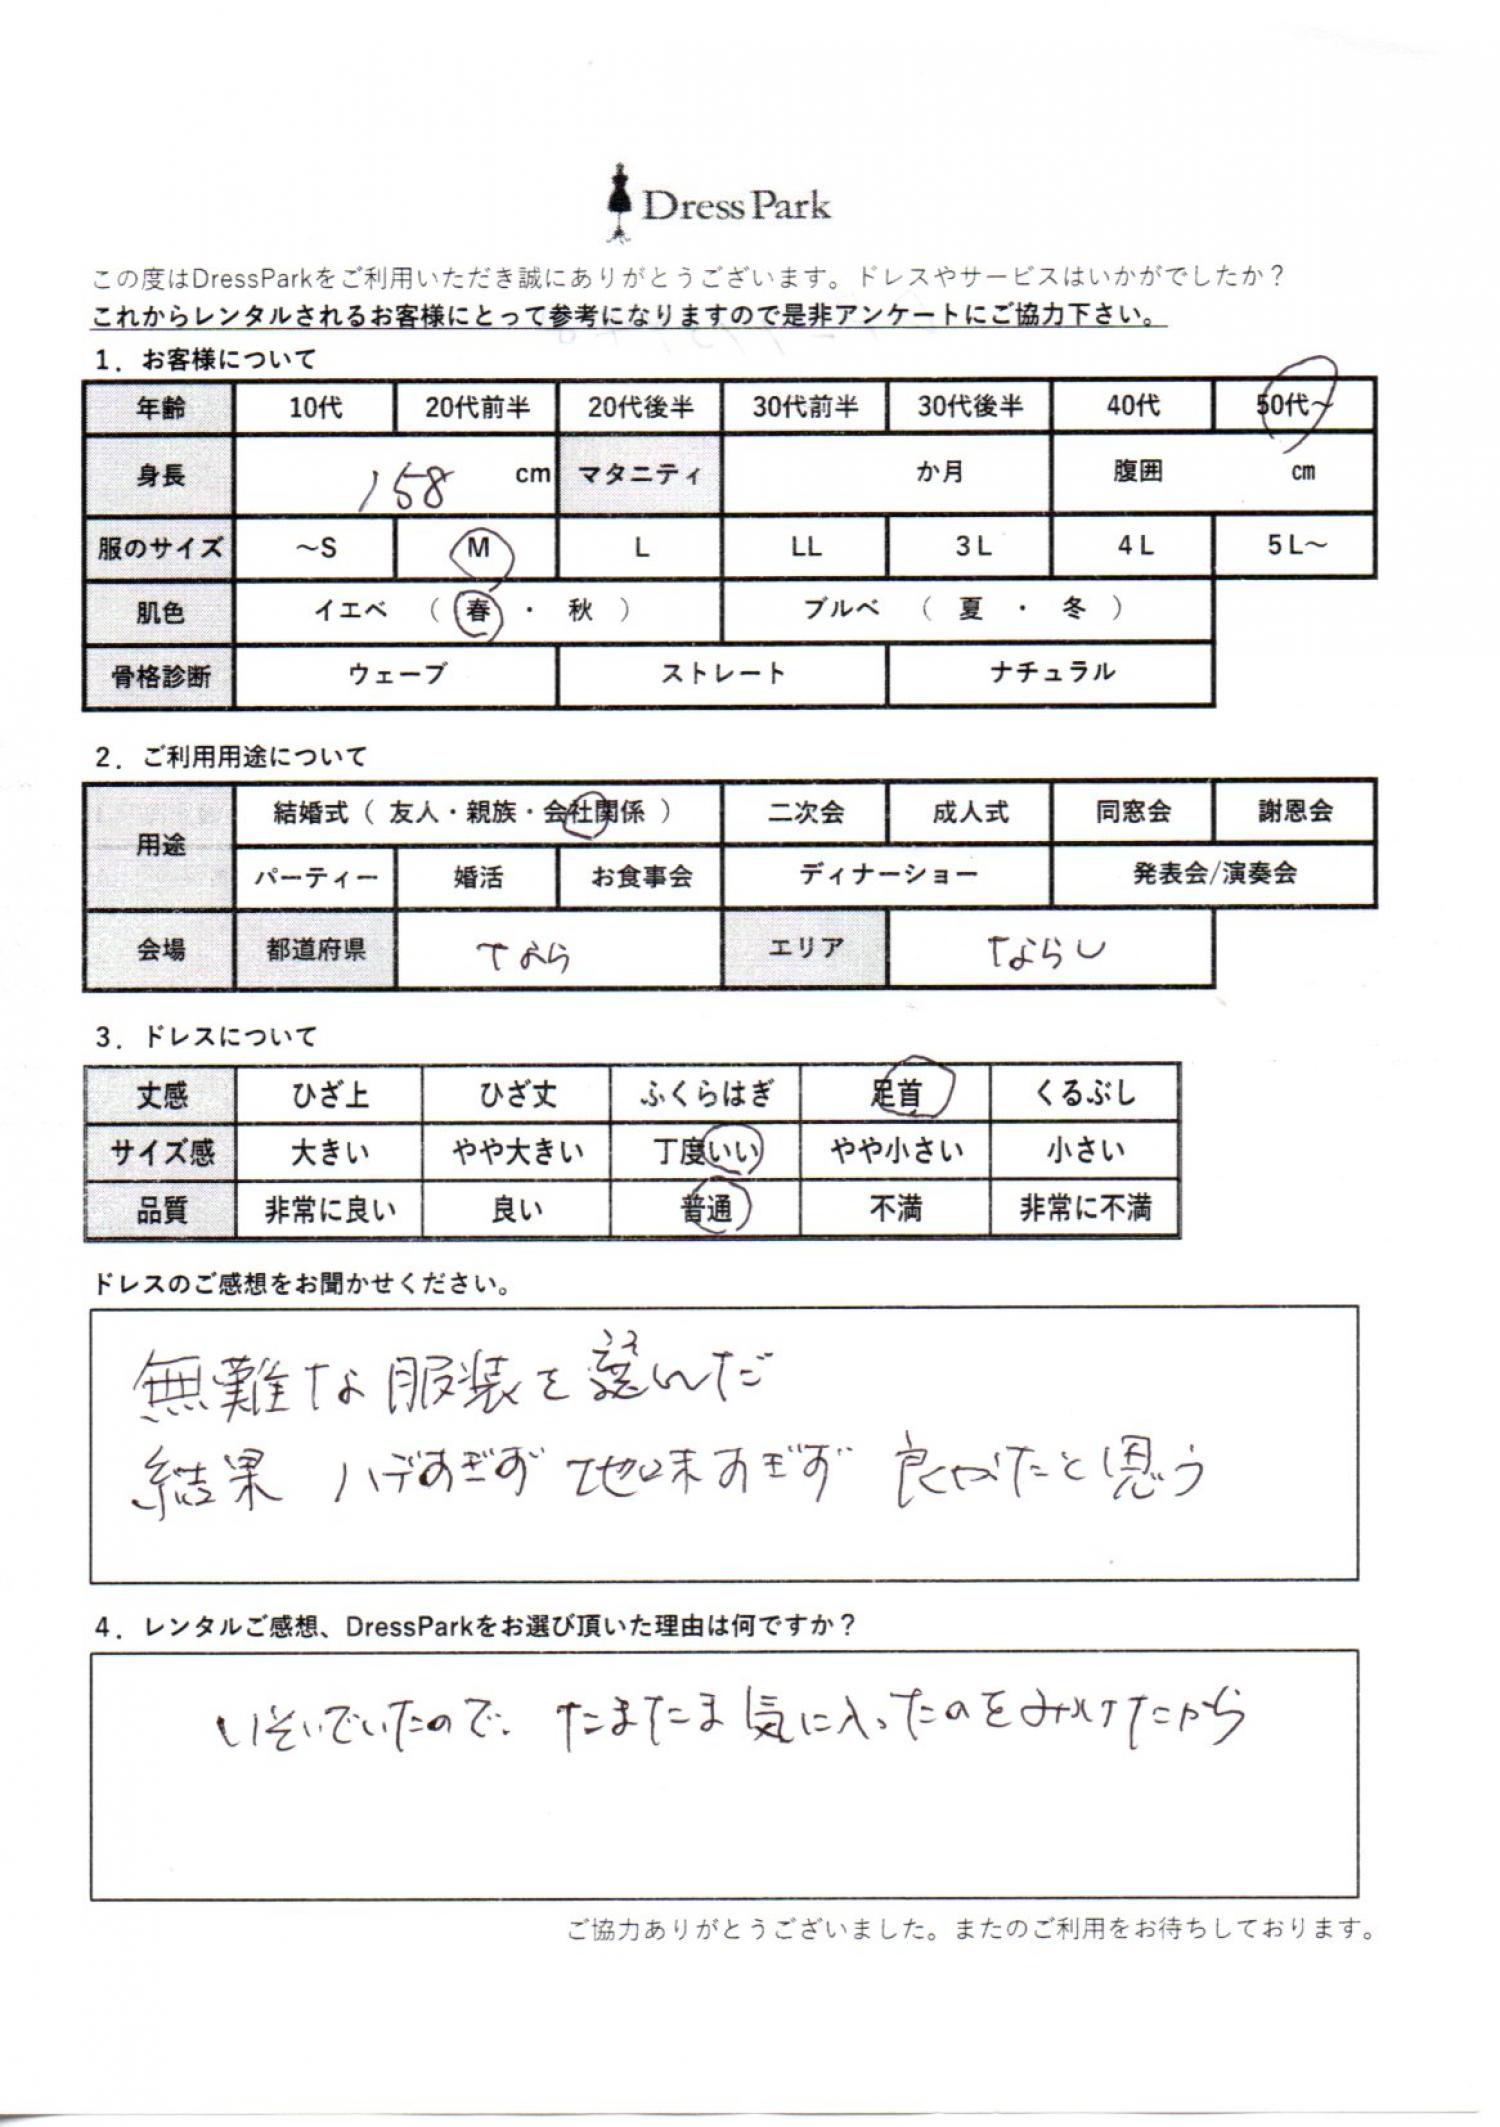 Dress Park
この度はDressParkをご利用いただき誠にありがとうございます。ドレスやサービスはいかがでしたか？
これからレンタルされるお客様にとって参考になりますので是非アンケートにご協力下さい。
1．お客様について
年齢 10代 20代前半 20代後半 30代前半 30代後半 40代 50代～
身長 158 cm マタニティ か月 腹囲 cm
服のサイズ ～S M L LL 3L 4L 5L～
肌色 イエベ （ 春 ・ 秋 ） ブルベ （ 夏 ・ 冬 ）
骨格診断 ウェーブ ストレート ナチュラル
2．ご利用用途について
用途 結婚式（ 友人・親族・会社関係 ） 二次会 成人式 同窓会 謝恩会
パーティー 婚活 お食事会 ディナーショー 発表会/演奏会
会場 都道府県 なら エリア ならし
3．ドレスについて
丈感 ひざ上 ひざ丈 ふくらはぎ 足首 くるぶし
サイズ感 大きい やや大きい 丁度いい やや小さい 小さい
品質 非常に良い 良い 普通 不満 非常に不満
ドレスのご感想をお聞かせください。
無難な服装を選んだ
結果 ハデすぎず 地味すぎず 良かたと思う
4．レンタルご感想、DressParkをお選び頂いた理由は何ですか？
いそいでいたので、たまたま気に入ったのをみつけたから
ご協力ありがとうございました。またのご利用をお待ちしております。